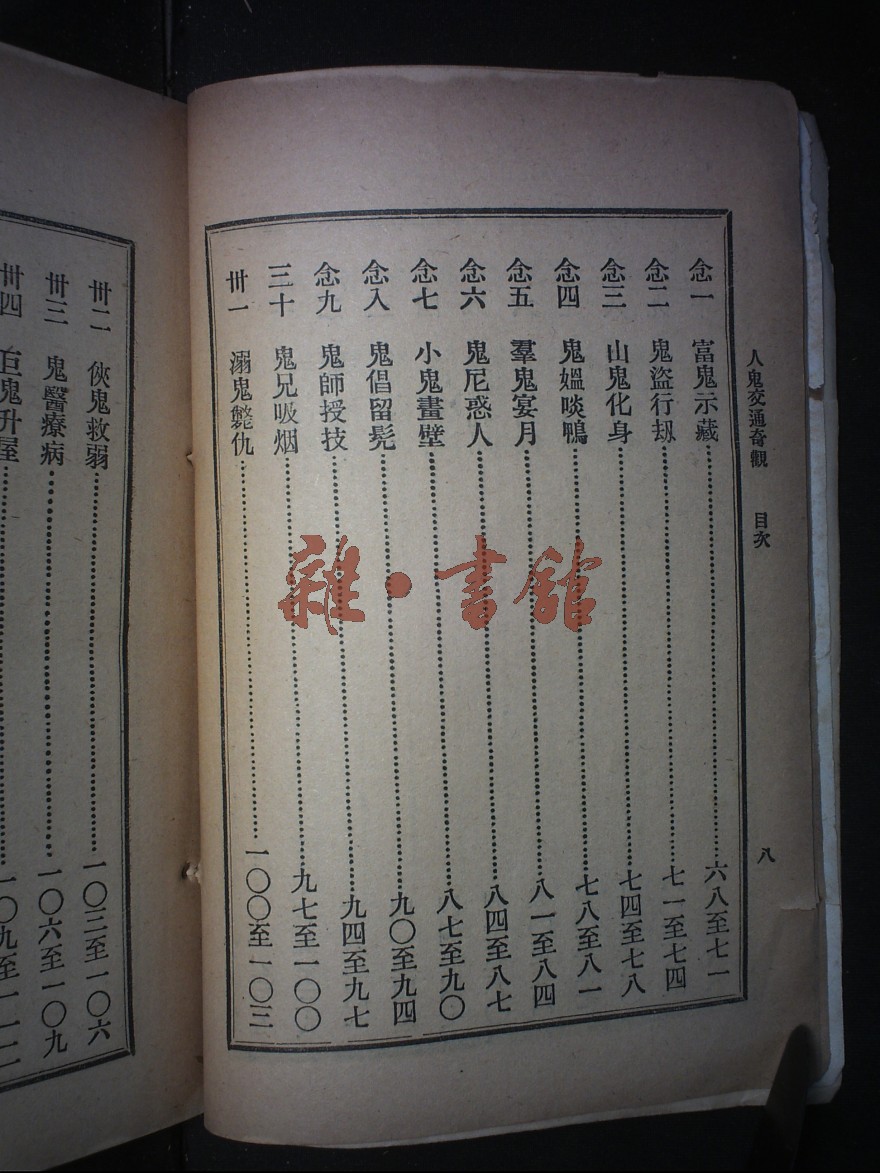 人鬼交通奇觀 目次 八
念一 富鬼示藏 六八至七一
念二 鬼盜行刼 七一至七四
念三 山鬼化身 七四至七八
念四 鬼媼啖鴨 七八至八一
念五 羣鬼宴月 八一至八四
念六 鬼尼惑人 八四至八七
念七 小鬼畫壁 八七至九〇
念入 鬼倡留髡 九〇至九四
念九 鬼師授技 九四至九七
三十 鬼兄吸烟 九七至一〇〇
卅一 溺鬼斃仇 一〇〇至一〇三
卅二 俠鬼救弱 一〇三至一〇六
卅三 鬼醫療病 一〇六至一〇九
卅四 巨鬼升屋 一〇九至一一二
雜·書館